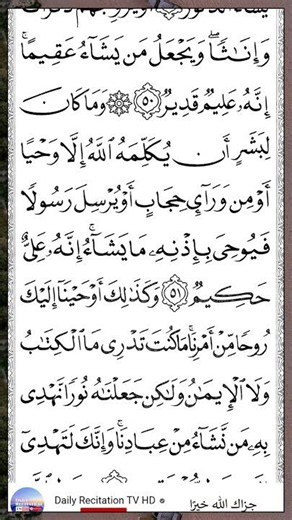 وَإِنَٰثًاۖ وَيَجْعَلُ مَن يَشَآءُ عَقِيمًاۚ
إِنَّهُۥ عَلِيمٌ قَدِيرٌ ٥٠ ۞ وَمَا كَانَ
لِبَشَرٍ أَن يُكَلِّمَهُ ٱللَّهُ إِلَّا وَحْيًا
أَوْ مِن وَرَآيِٕ حِجَابٍ أَوْ يُرْسِلَ رَسُولًا
فَيُوحِىَ بِإِذْنِهِۦ مَا يَشَآءُۚ إِنَّهُۥ عَلِىٌّ
حَكِيمٌ ٥١ وَكَذَٰلِكَ أَوْحَيْنَآ إِلَيْكَ
رُوحًا مِّنْ أَمْرِنَاۚ مَا كُنتَ تَدْرِى مَا ٱلْكِتَٰبُ
وَلَا ٱلْإِيمَٰنُ وَلَٰكِن جَعَلْنَٰهُ نُورًا نَّهْدِى
بِهِۦ مَن نَّشَآءُ مِنْ عِبَادِنَاۚ وَإِنَّكَ لَتَهْدِىٓ
Daily Recitation TV HD
جزاك الله خيرًا